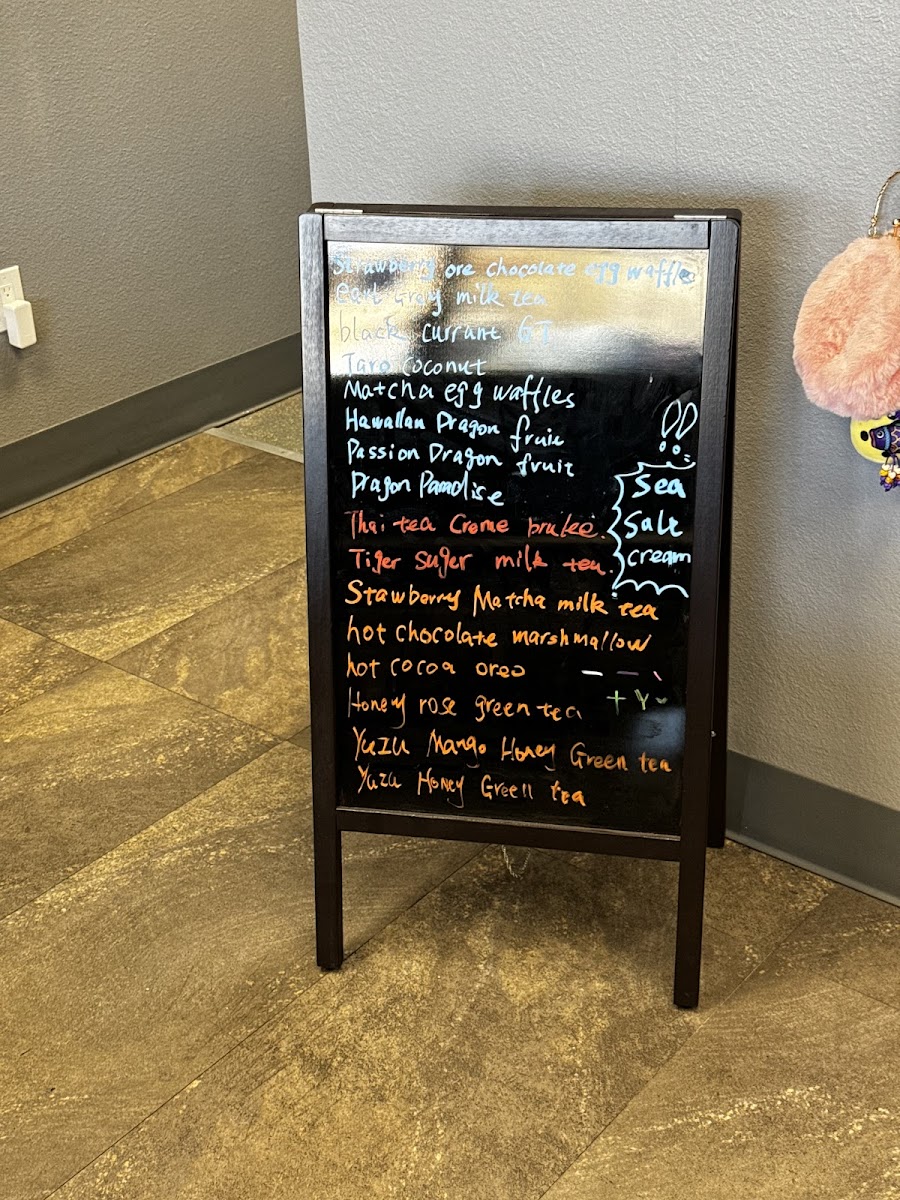 Strawberry ore chocolate egg waffles
earl Gray milk tea
black currant GT
Taro coconut
Matcha egg waffles
Hawaiian Dragon fruit
Passion Dragon fruit
Dragon Paradise
!!
Sea
Salt
cream
Thai tea Creme brulee.
Tiger Suger milk tea.
Stawberry Matcha milk tea
hot chocolate marshmallow
hot cocoa oreo
Honey rose green tea
Yuzu Mango Honey Green tea
Yuzu Honey Green tea